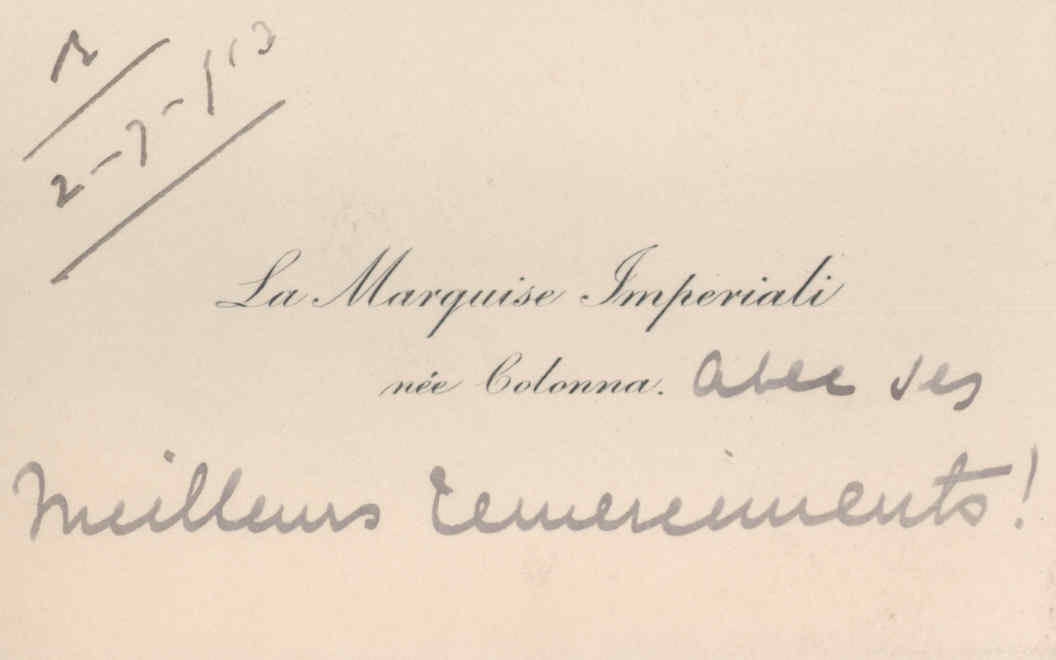 R
2-7-913
La Marquise Imperiali
née Colonna. avec ses
meilleurs remerciements!